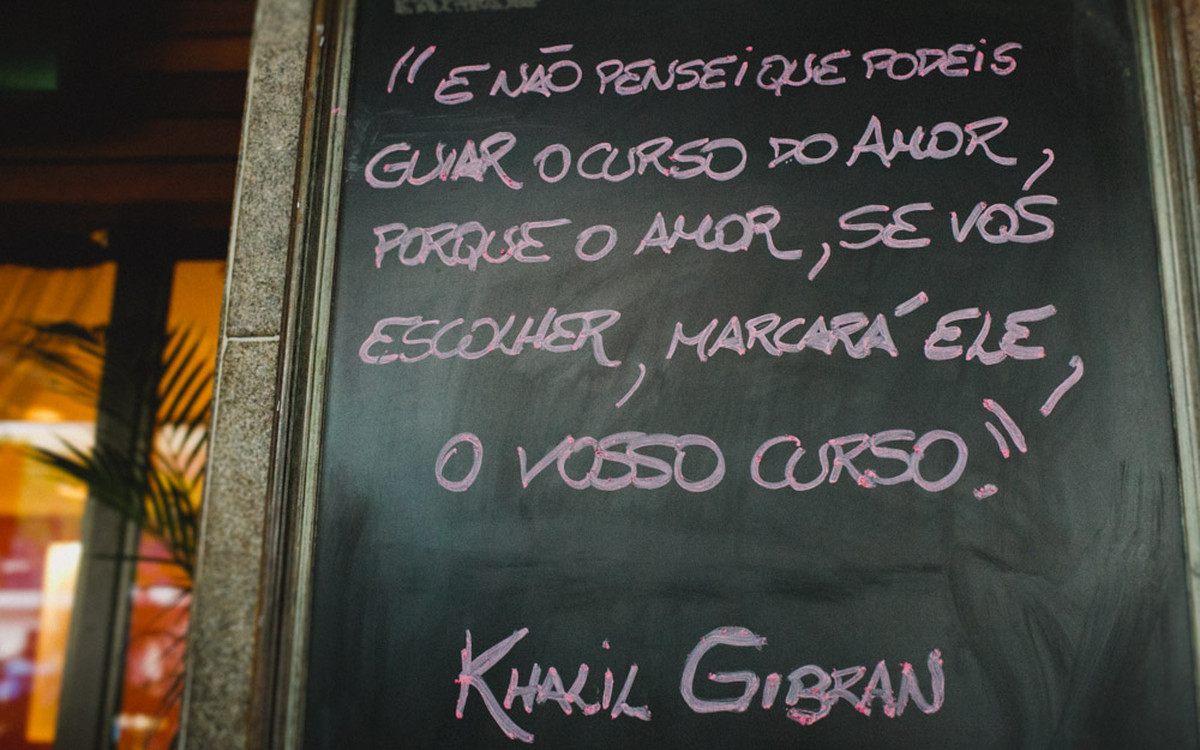 "E NÃO PENSEI QUE PODEIS
GUIAR O CURSO DO AMOR,
PORQUE O AMOR, SE VOS
ESCOLHER, MARCARÁ ELE,
O VOSSO CURSO."
KHALIL GIBRAN